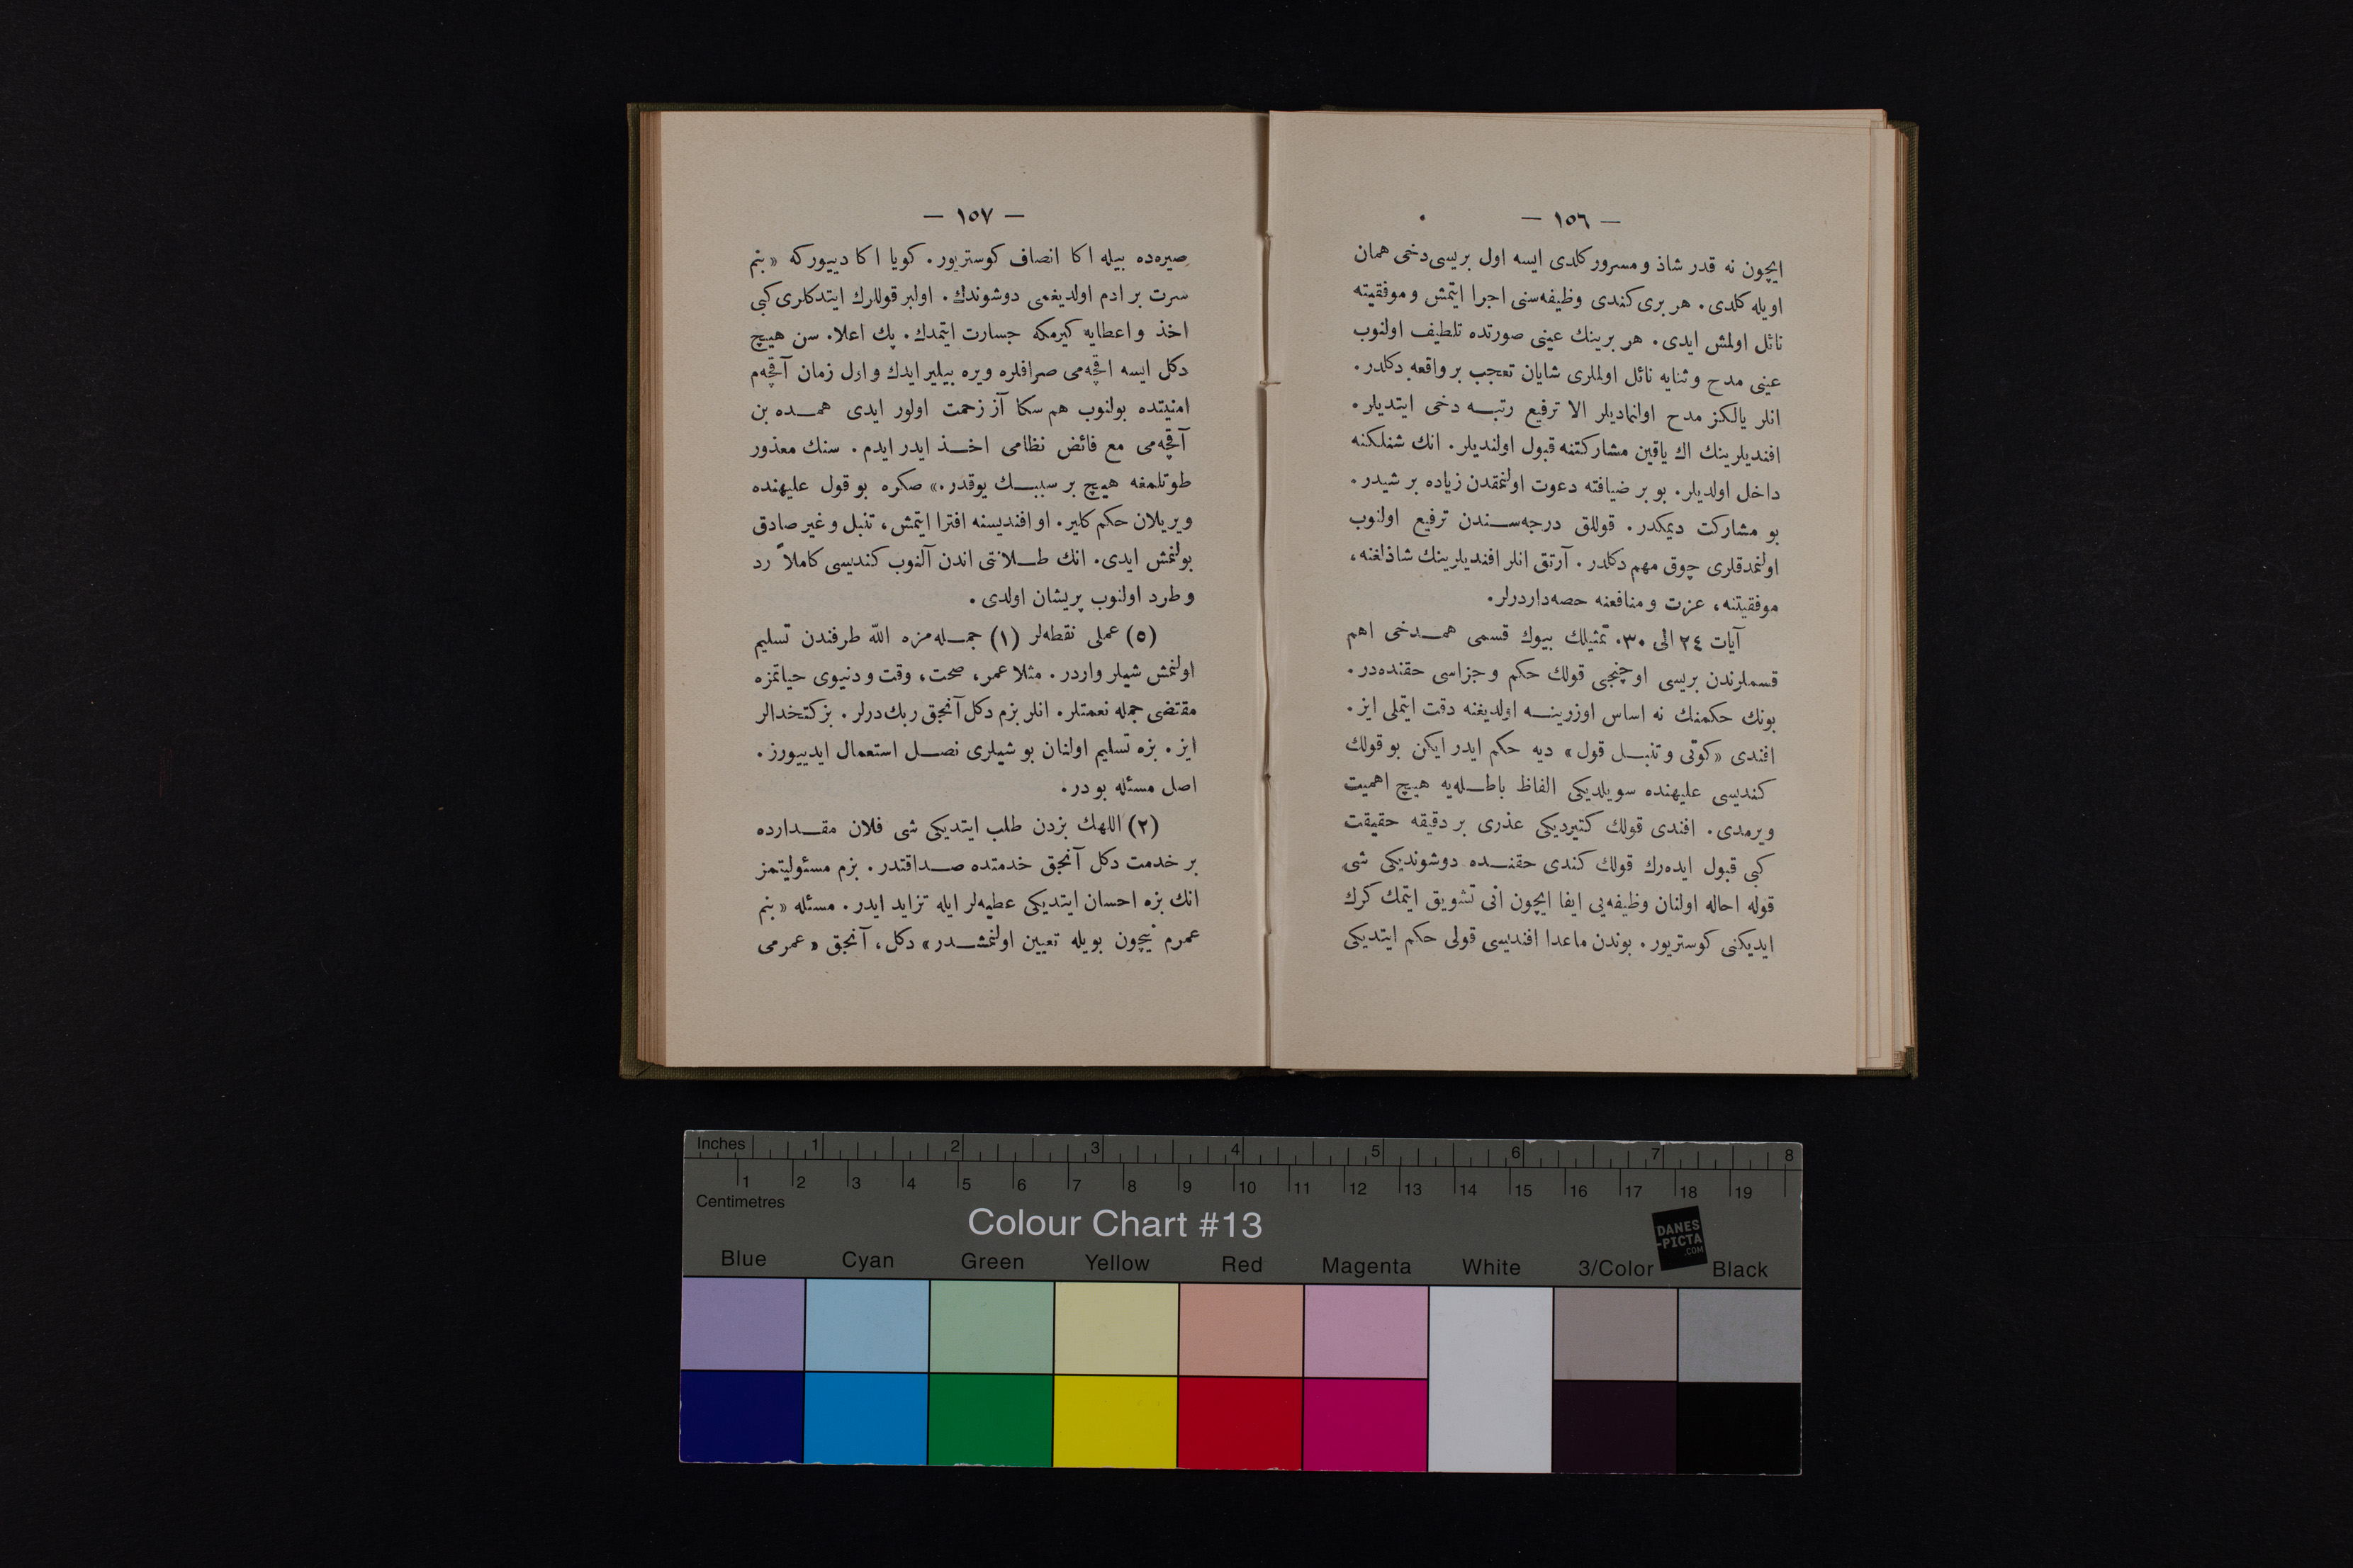 — ١٥٦ —
ایچون نه قدر شاذ و مسرور كلدی ایسه اول بریسی دخی همان
اویله كلدی. هر بری كندی وظیفه‌سنی اجرا ایتمش و موفقیته
نائل اولمش ایدی. هر برینك عینی صورتده تلطیف اولنوب
عینی مدح و ثنایه نائل اولملری شایان تعجب بر واقعه دكلدر.
انلر یالكز مدح اولنمادیلر الا ترفیع رتبـــه دخی ایتدیلر.
افندیلرینك اك یاقین مشاركتنه قبول اولندیلر. انك شنلكنه
داخل اولدیلر. بو بر ضیافته دعوت اولنمقدن زیاده بر شیدر.
بو مشاركت دیمكدر. قوللق درجه‌ســـندن ترفیع اولنوب
اولنمدقلری چوق مهم دكلدر. آرتق انلر افندیلرینك شاذلغنه،
موفقیتنه، عزت و منافعنه حصه‌داردرلر.
آیات ٢٤ الی ٣٠. تمثیلك بیوك قسمی همـــدخی اهم
قسملرندن بریسی اوچنجی قولك حكم و جزاسی حقنده‌در.
بونك حكمنك نه اساس اوزرینـــه اولدیغنه دقت ایتملی ایز.
افندی «كوتی و تنبـــل قول» دیه حكم ایدر ایكن بو قولك
كندیسی علیهنده سویلدیكی الفاظ باطـــله‌یه هیچ اهمیت
ویرمدی. افندی قولك كتیردیكی عذری بر دقیقه حقیقت
كبی قبول ایده‌رك قولك كندی حقنـــده دوشوندیكی شی
قوله احاله اولنان وظیفه‌یی ایفا ایچون انی تشویق ایتمك كرك
ایدیكنی كوستریور. بوندن ماعدا افندیسی قولی حكم ایتدیكی
— ١٥٧ —
صیره‌ده بیله اكا انصاف كوستریور. كویا اكا دییوركه «بنم
سرت بر ادم اولدیغمی دوشوندك. اولبر قوللرك ایتدكلری كبی
اخذ و اعطایه كیرمكه جسارت ایتمدك. پك اعلا. سن هیچ
دكل ایسه اقچه‌می صرافلره ویره بیلیر ایدك و اول زمان آقچه‌م
امنیتده بولنوب هم سكا آز زحمت اولور ایدی همـــده بن
آقچه‌می مع فائض نظامی اخـــذ ایدر ایدم. سنك معذور
طوتلمغه هیچ بر سببـــك یوقدر.» صكره بو قول علیهنده
ویریلان حكم كلیر. او افندیسنه افترا ایتمش، تنبل و غیر صادق
بولنمش ایدی. انك طـــلانتی اندن آلنوب كندیسی كاملاً رد
و طرد اولنوب پریشان اولدی.
(٥) عملی نقطه‌لر (١) جمـــله‌مزه الله طرفندن تسلیم
اولنمش شیلر واردر. مثلا عمر، صحت، وقت و دنیوی حیاتمزه
مقتضی جمله نعمتلر. انلر بزم دكل آنجق ربك‌درلر. بز كتخدالر
ایز. بزه تسلیم اولنان بو شیلری نصـــل استعمال ایدییورز.
اصل مسئله بو در.
(٢) اللهك بزدن طلب ایتدیكی شی فلان مقـــدارده
بر خدمت دكل آنجق خدمتده صـــداقتدر. بزم مسئولیتمز
انك بزه احسان ایتدیكی عطیه‌لر ایله تزاید ایدر. مسئله «بنم
عمرم نیچون بویله تعیین اولنمشـــدر» دكل، آنجق «عمرمی
Inches 1 2 3 4 5 6 7 8
1 2 3 4 5 6 7 8 9 10 11 12 13 14 15 16 17 18 19
Centimetres
Colour Chart #13
DANES
-PICTA
.COM
Blue Cyan Green Yellow Red Magenta White 3/Color Black